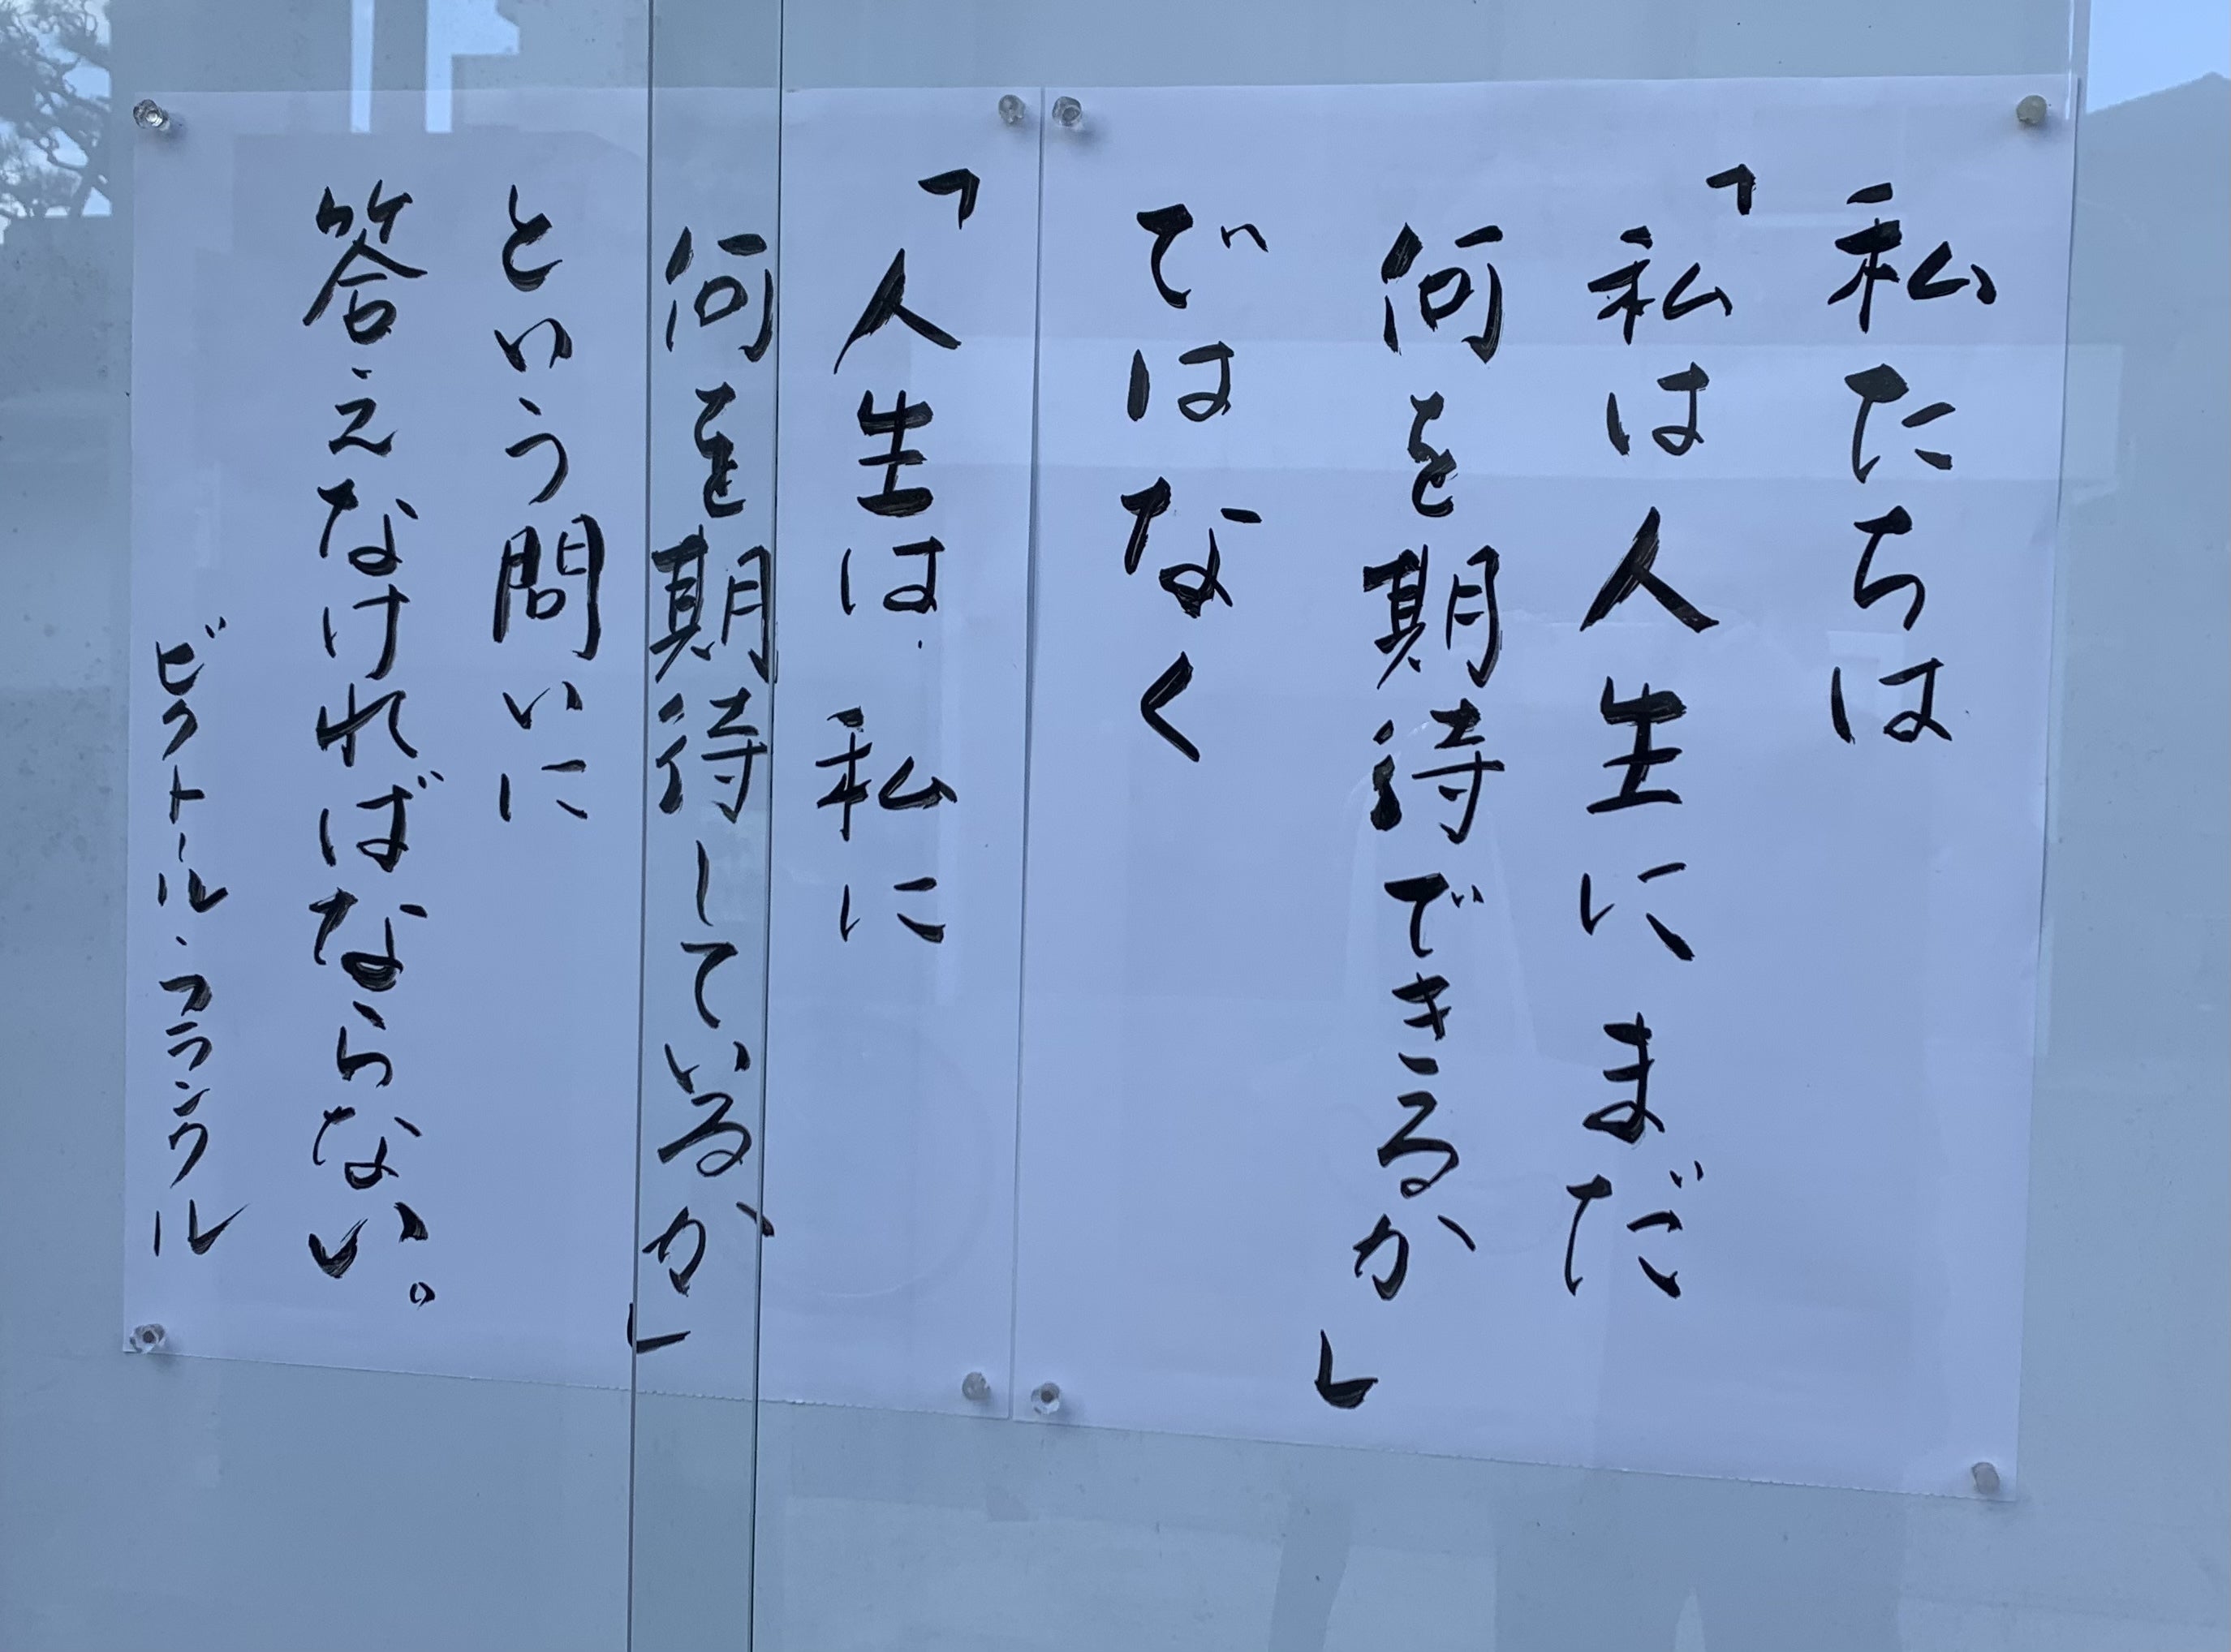 私たちは
「私は人生にまだ
何を期待できるか」
ではなく
「人生は私に
何を期待しているか」
という問いに
答えなければならない。
ビクトール・フランクル